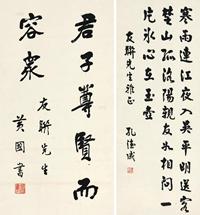 寒雨連江夜入吳平明送客
楚山孤洛陽親友如相問一
片冰心在玉壺
友聯先生雅正
孔德成
君子尊賢而
容眾
友聯先生
黃國書